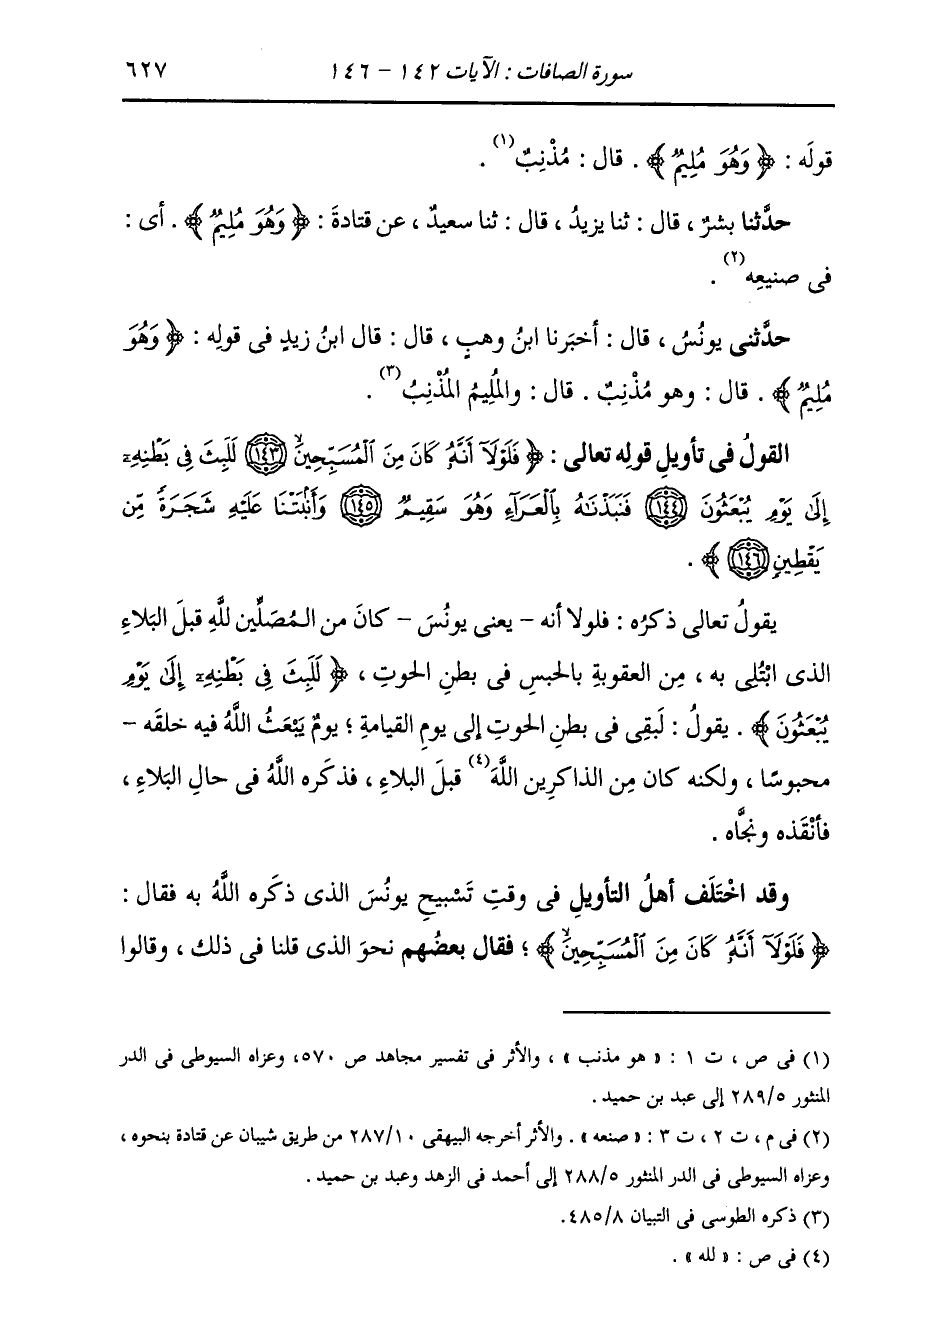 سورة الصافات : الآيات ١٤٢ - ١٤٦ ٦٢٧
قولَه : ﴿ وَهُوَ مُلِيمٌ ﴾ . قال : مُذْنِبٌ(١) .
حدَّثنا بشرٌ ، قال : ثنا يزيدُ ، قال : ثنا سعيدٌ ، عن قتادةَ : ﴿ وَهُوَ مُلِيمٌ ﴾ . أى :
فى صنيعِه(٢) .
حدَّثنى يونُسُ ، قال : أخبَرنا ابنُ وهبٍ ، قال : قال ابنُ زيدٍ فى قولِه : ﴿ وَهُوَ
مُلِيمٌ ﴾ . قال : وهو مُذْنِبٌ . قال : والمُلِيمُ المُذْنِبُ(٣) .
القولُ فى تأويلِ قولِه تعالى : ﴿ فَلَوْلَآ أَنَّهُۥ كَانَ مِنَ ٱلْمُسَبِّحِينَۙ ١٤٣ لَلَبِثَ فِى بَطْنِهِۦٓ
إِلَىٰ يَوْمِ يُبْعَثُونَ ١٤٤ فَنَبَذْنَٰهُ بِٱلْعَرَآءِ وَهُوَ سَقِيمٌ ١٤٥ وَأَنۢبَتْنَا عَلَيْهِ شَجَرَةً مِّن
يَقْطِينٍ ١٤٦ ﴾ .
يقولُ تعالى ذكرُه : فلولا أنه - يعنى يونُسَ - كانَ من المُصَلِّين للَّهِ قبلَ البَلاءِ
الذى ابْتُلِى به ، مِن العقوبةِ بالحبسِ فى بطنِ الحوتِ ، ﴿ لَلَبِثَ فِى بَطْنِهِۦٓ إِلَىٰ يَوْمِ
يُبْعَثُونَ ﴾ . يقولُ : لَبقِى فى بطنِ الحوتِ إلى يومِ القيامةِ ؛ يومٌ يَبْعَثُ اللَّهُ فيه خلقَه -
محبوسًا ، ولكنه كان مِن الذاكرِين اللَّهَ(٤) قبلَ البلاءِ ، فذكَره اللَّهُ فى حالِ البَلاءِ ،
فأنْقَذه ونجَّاه .
وقد اخْتَلَف أهلُ التأويلِ فى وقتِ تَسْبيحِ يونُسَ الذى ذكَره اللَّهُ به فقال :
﴿ فَلَوْلَآ أَنَّهُۥ كَانَ مِنَ ٱلْمُسَبِّحِينَۙ ﴾ ؛ فقال بعضُهم نحوَ الذى قلنا فى ذلك ، وقالوا
(١) فى ص ، ت ١ : « هو مذنب » ، والأثر فى تفسير مجاهد ص ٥٧٠، وعزاه السيوطى فى الدر
المنثور ٢٨٩/٥ إلى عبد بن حميد .
(٢) فى م ، ت ٢ ، ت ٣ : « صنعه » . والأثر أخرجه البيهقى ٢٨٧/١٠ من طريق شيبان عن قتادة بنحوه ،
وعزاه السيوطى فى الدر المنثور ٢٨٨/٥ إلى أحمد فى الزهد وعبد بن حميد .
(٣) ذكره الطوسى فى التبيان ٤٨٥/٨.
(٤) فى ص : « لله » .